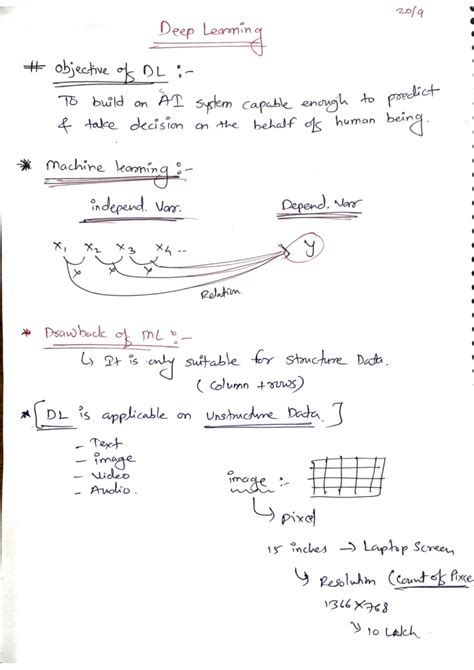 20/9
Deep Learning
# Objective of DL :-
To build an AI system capable enough to predict
& take decision on the behalf of human being.
* Machine learning :-
independ. Var. Depend. Var
x1 x2 x3 x4 .. y
x x x
Relation
* Drawback of ML :-
↳ It is only suitable for structure Data.
(column + rows)
* [DL is applicable on Unstructure Data.]
- Text
- image
- Video
- Audio.
image :-
↳ pixel
15 inches → Laptop Screen
↳ Resolution (count of Pixce
1366 X 768
↳ 10 Lakh